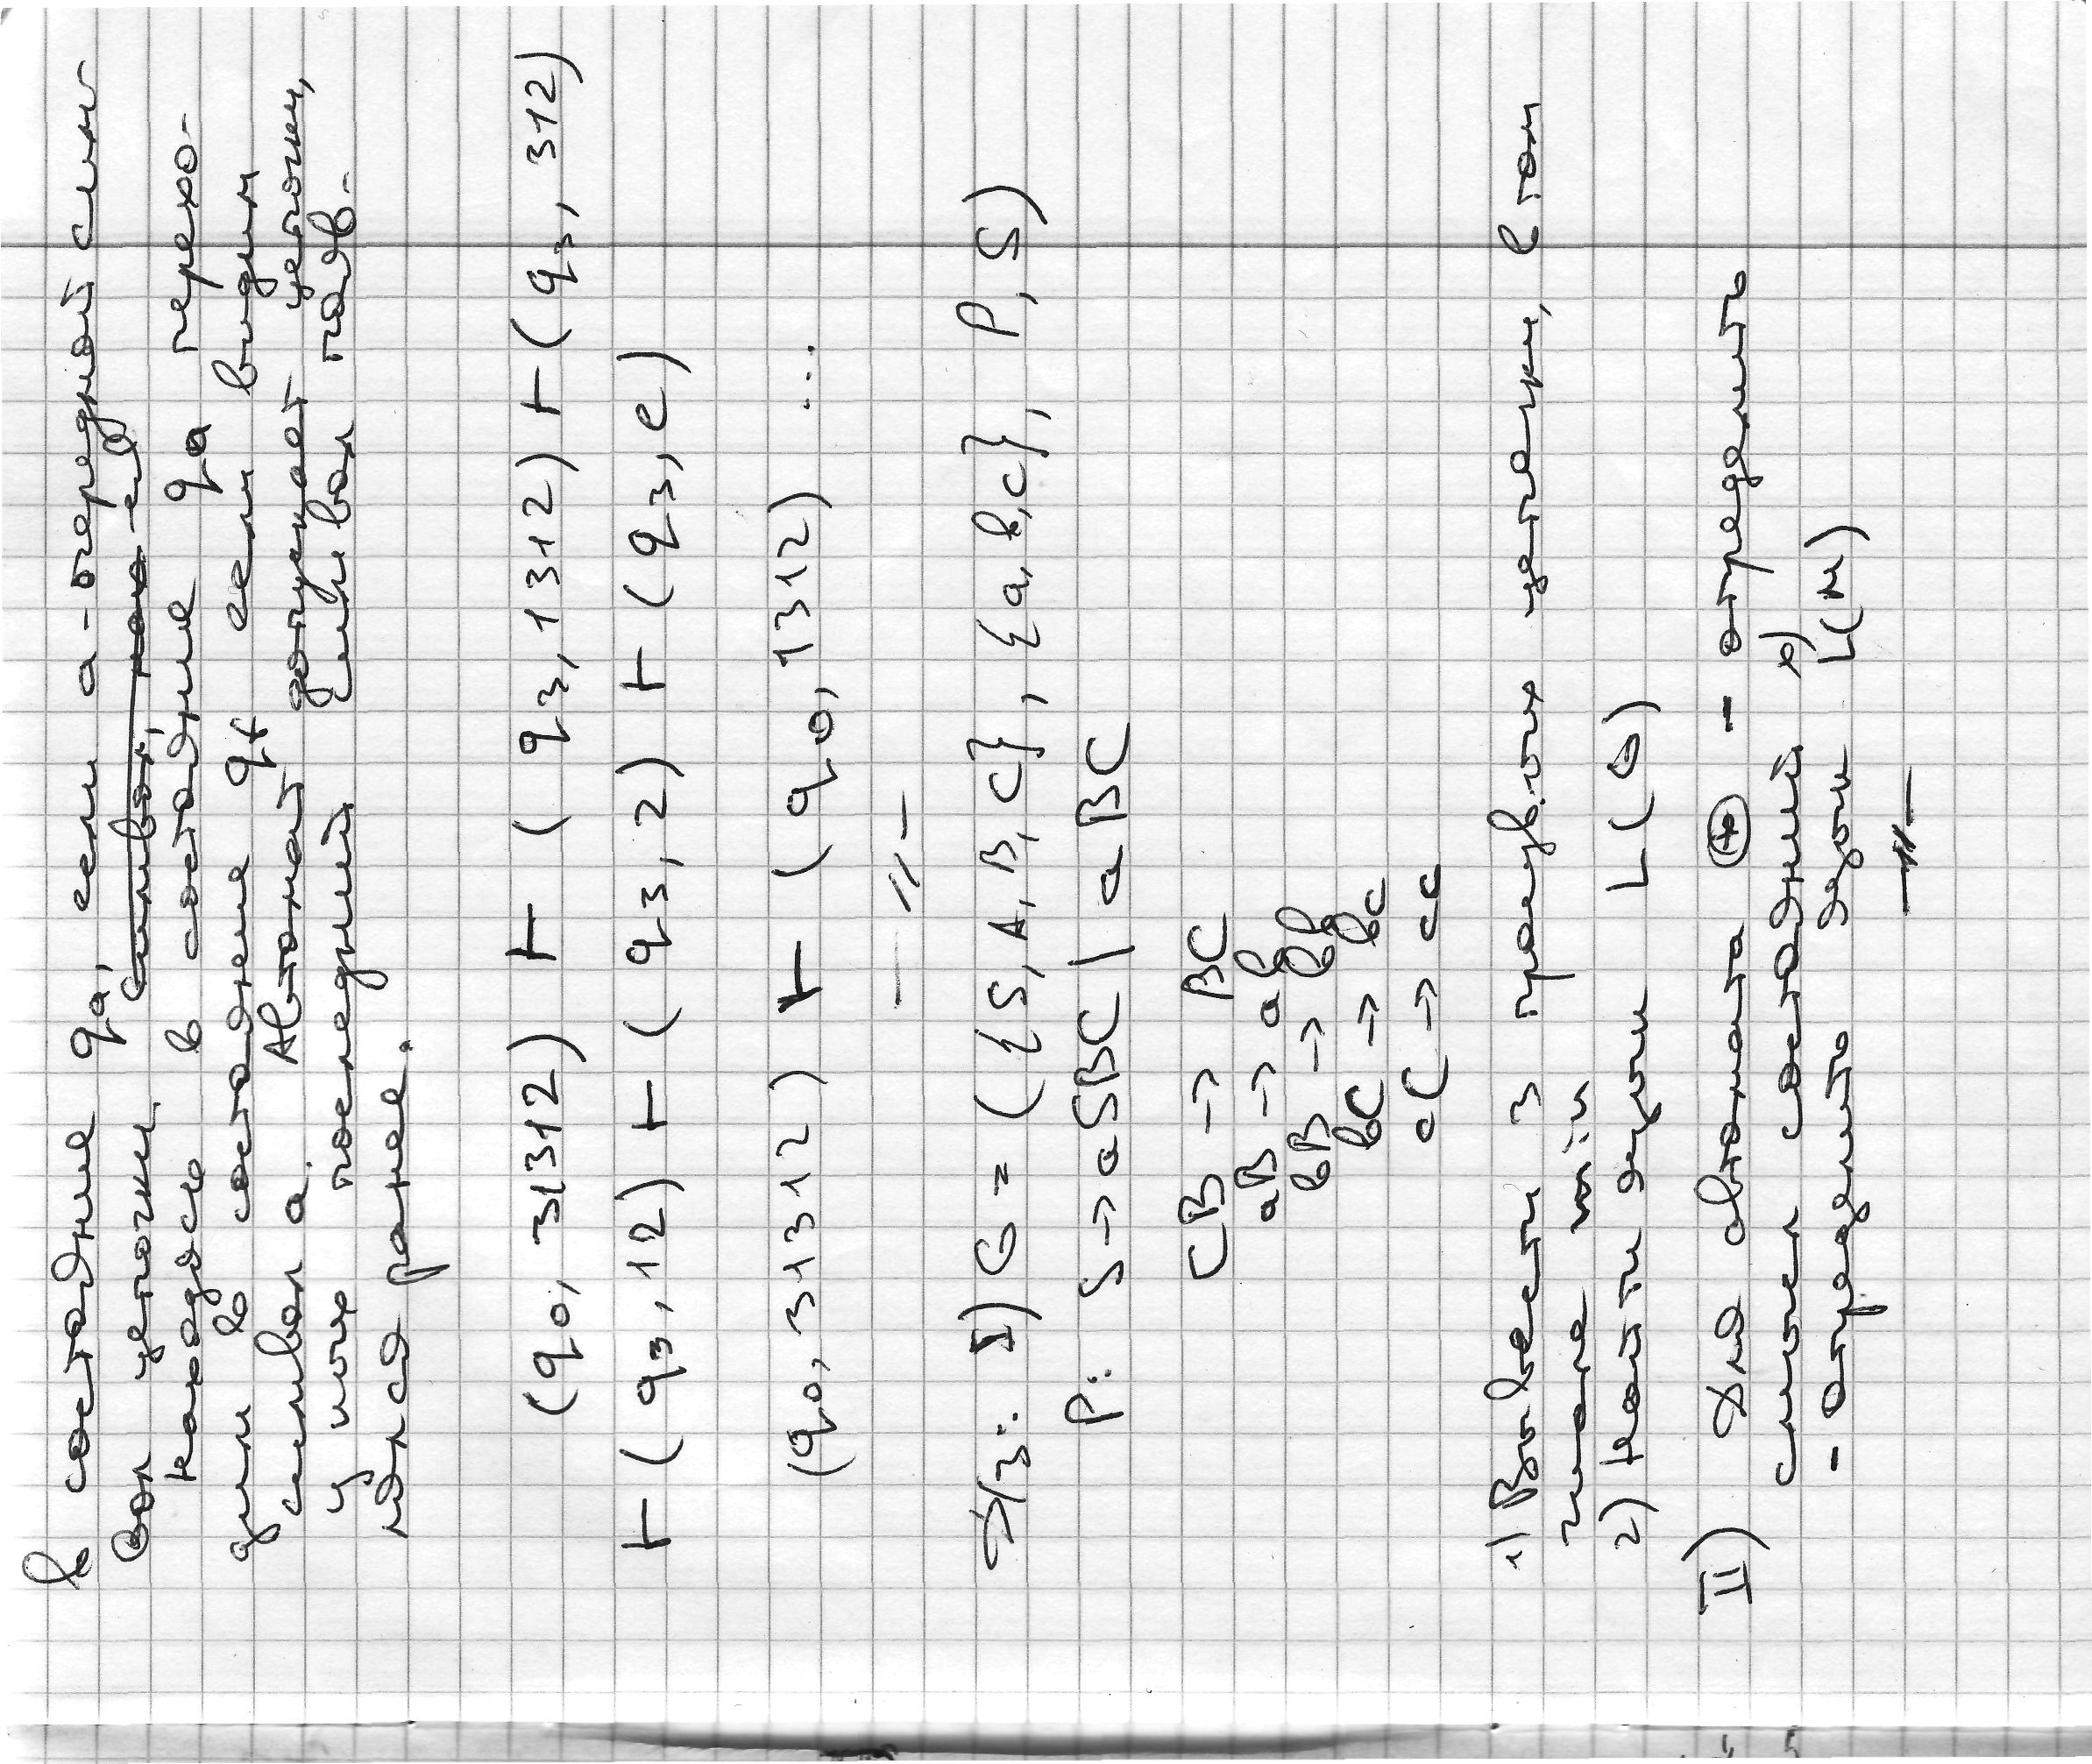 в состояние qa, если a-очередной сим-
вол цепочки, символ, не яв
находясь в состояние qa перехо-
дим в состояние qf если видим
символ a. Автомат допускает цепочки,
у них последний символ появ-
лялся ранее.
(q0, 31312) ⊢ (q3, 1312) ⊢ (q3, 312)
⊢ (q3, 12) ⊢ (q3, 2) ⊢ (q3, e)
(q0, 31312) ⊢ (q0, 1312) ...
— // —
Д/з: I) G = ({S, A, B, C}, {a, b, c}, P, S)
P: S → aSBC | aBC
CB → BC
aB → ab
bB → bb
bC → bc
cC → cc
1) Вывести 3 цепочки, в том
числе min
2) Найти язык L(G)
II) Для автомата ⊛ - определить
смысл состояний
- Определить язык L(M)
— // —